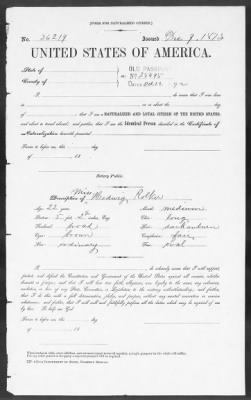 [FORM FOR NATURALIZED CITIZEN.]
No. 36219 Issued Dec 9, 1873
UNITED STATES OF AMERICA.
State of
County of
OLD PASSPORT
No 23495
DATED Oct 12 72
that I am a NATURALIZED AND LOYAL CITIZEN OF THE UNITED STATES,
and about to travel abroad; and further, that I am the Identical Person described in the Certificate of
Naturalization herewith presented.
Sworn to before me, this day
of 18
Notary Public.
Miss
Description of Hedwig
Age: 22 years Mouth: medium
Stature: 5 ft 2 inches, Eng. Chin: long
Forehead: broad Hair: dark auburn
Eyes: brown Complexion: fair
Nose: ordinary Face: oval
I, do solemnly swear that I will support,
protect, and defend the Constitution and Government of the United States against all enemies, whether
domestic or foreign; and that I will bear true faith, allegiance, and loyalty to the same, any ordinance,
resolution, or law of any State, Convention, or Legislature to the contrary notwithstanding; and further,
that I do this with a full determination, pledge, and purpose, without any mental reservation or evasion
whatsoever; and further, that I will well and faithfully perform all the duties which may be required of me
by law: So help me God.
Sworn to before me, this day
of 18